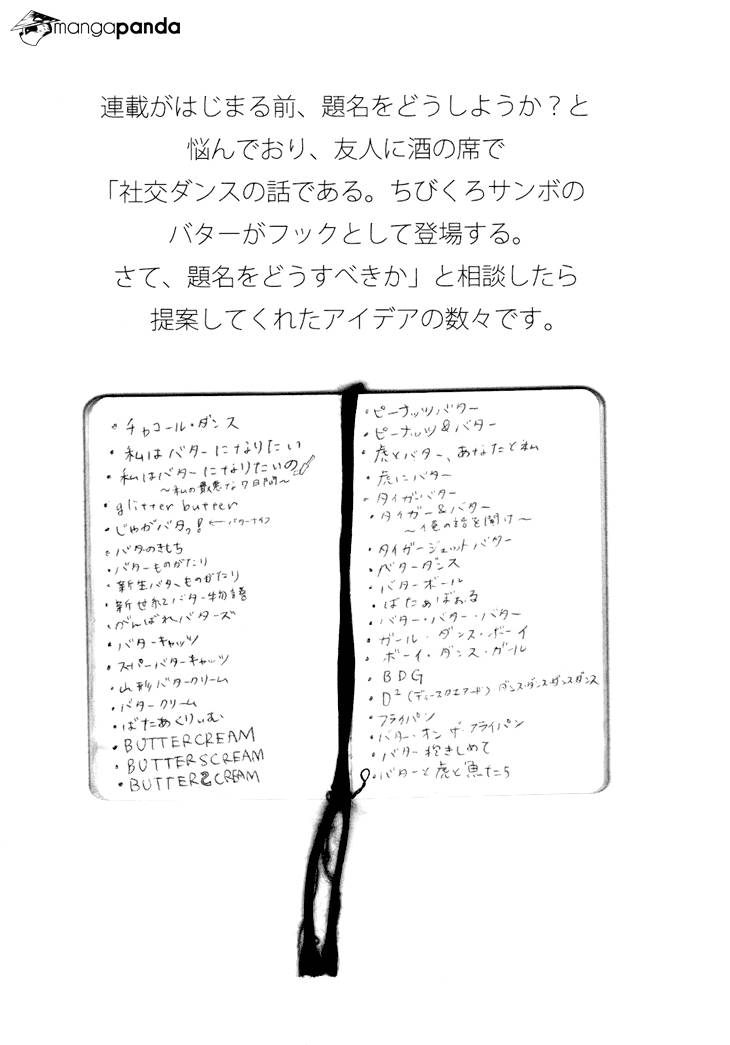 mangapanda
連載がはじまる前、題名をどうしようか？と
悩んでおり、友人に酒の席で
「社交ダンスの話である。ちびくろサンボの
バターがフックとして登場する。
さて、題名をどうすべきか」と相談したら
提案してくれたアイデアの数々です。
・チャコール・ダンス
・私はバターになりたい
・私はバターになりたいの
〜私の最悪な7日間〜
・glitter butter
・じゃがバタっ! ← バターナイフ
・バタのきもち
・バターものがたり
・新生バターものがたり
・新世紀バター物語
・がんばれバターズ
・バターキャッツ
・スーパーバターキャッツ
・山形バタークリーム
・バタークリーム
・ばたあくりぃむ
・BUTTERCREAM
・BUTTERSCREAM
・BUTTER2CREAM
・ピーナッツバター
・ピーナッツ&バター
・虎とバター、あなたと私
・虎にバター
・タイガーバター
・タイガー&バター
〜俺の話を聞け〜
・タイガージェットバター
・ベターダンス
・バターボール
・ばたぁばぉる
・バター・バター・バター
・ガール・ダンス・ボーイ
・ボーイ・ダンス・ガール
・BDG
・D² (ディースクエアード) ダンス・ダンスダンスダンス
・フライパン
・バター・オン ザ フライパン
・バター抱きしめて
・バターと虎と魚たち